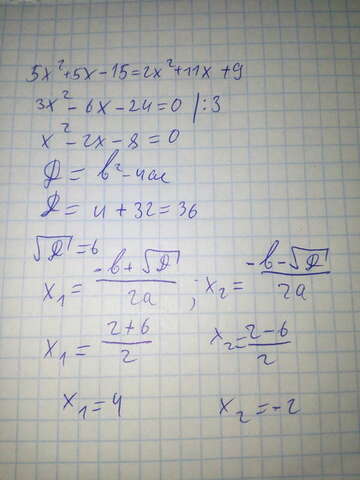 5x²+5x-15=2x²+11x+9
3x²-6x-24=0 |:3
x²-2x-8=0
D=b²-4ac
D=4+32=36
√D=6
x₁=(-b+√D)/2a ; x₂=(-b-√D)/2a
x₁=(2+6)/2 x₂=(2-6)/2
x₁=4 x₂=-2